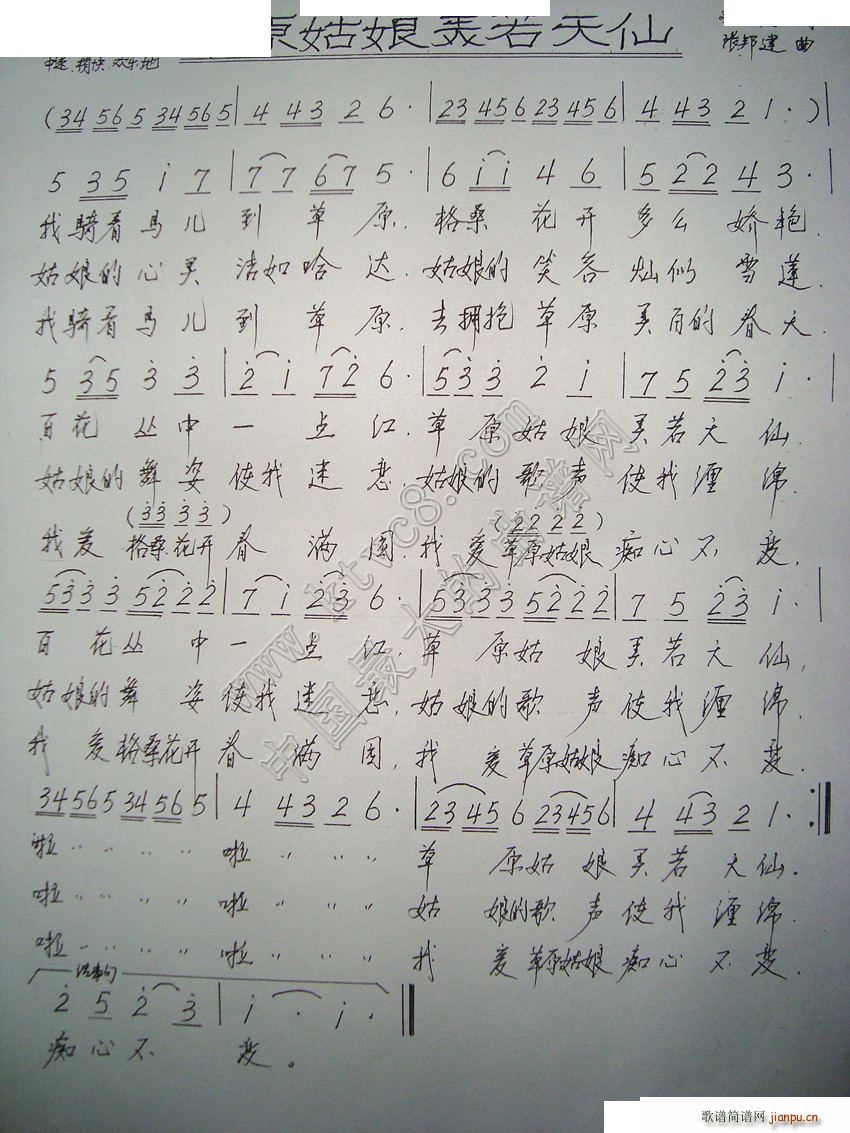 原姑娘美若天仙
中速 稍快 欢乐地
张邦建 曲
(34 56 5 34 56 5 | 4 43 2 6· | 23 456 23 456 | 4 43 2 1·)
5 35 i 7 | 77 67 5· | 6 ii 4 6 | 5 22 4 3·
我骑着马儿到草原. 格桑花开多么娇艳.
姑娘的心灵洁如哈达. 姑娘的笑容灿似雪莲.
我骑着马儿到草原. 去拥抱草原美丽的春天.
5 35 3 3 | 2 i 72 6· | 533 2 i | 7 5 23 i·
百花丛中一点红. 草原姑娘美若天仙.
姑娘的舞姿使我迷恋. 姑娘的歌声使我缠绵.
(33 33) (22 22)
我爱格桑花开春满园. 我爱草原姑娘痴心不变.
5333 5222 | 7 i 23 6· | 5333 5222 | 7 5 23 i·
百花丛中一点红. 草原姑娘美若天仙.
姑娘的舞姿使我迷恋. 姑娘的歌声使我缠绵.
我爱格桑花开春满园. 我爱草原姑娘痴心不变.
34 56 5 34 56 5 | 4 43 2 6· | 23 45 6 23 456 | 4 43 2 1· :||
啦 〃 〃 〃 〃 啦 〃 〃 〃 草原姑娘美若天仙.
啦 〃 〃 〃 〃 啦 〃 〃 〃 姑娘的歌声使我缠绵.
啦 〃 〃 〃 〃 啦 〃 〃 〃 我爱草原姑娘痴心不变.
结束句
2 5 2 3 | i · i · ||
痴心不变。
www.ktvc8.com
中国最大的曲谱网
歌谱简谱网
jianpu.cn